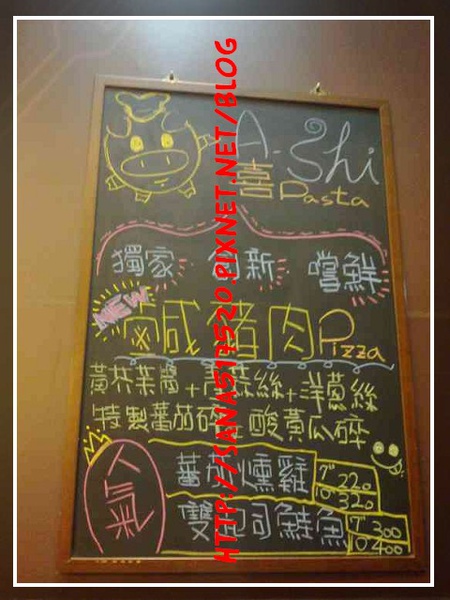 A-Shi
喜 Pasta
獨家 創新 嚐鮮
NEW
鹹豬肉Pizza
黃芥茉醬+青蒜絲+洋蔥絲
特製蕃茄碎 酸黃瓜碎
人氣
蕃茄燻雞 7" 220
10" 320
雙起司鮭魚 7" 300
10" 400
HTTP://SANA517520.PIXNET.NET/BLOG